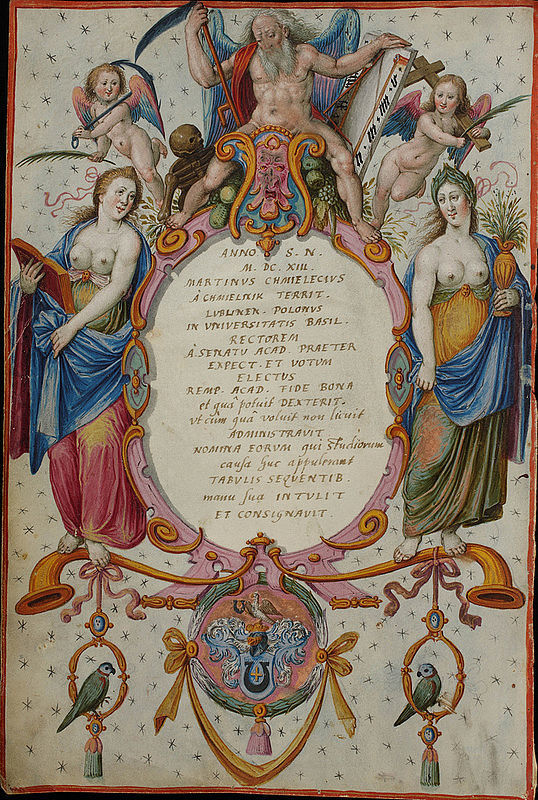 ANNO S. N.
M. DC. XIII.
MARTINUS CHMIELECIUS
À CHMIELNIK TERRIT.
LUBLINEN. POLONUS
IN UNIVERSITATIS BASIL.
RECTOREM
À SENATU ACAD. PRAETER
EXPECT. ET VOTUM
ELECTUS
REMP. ACAD. FIDE BONA
et quâ potuit DEXTERIT.
ut cum quâ voluit non licuit
ADMINISTRAVIT
NOMINA EORUM qui Studiorum
causa huc appulerant
TABULIS SEQUENTIB.
manu sua INTULIT
ET CONSIGNAVIT.